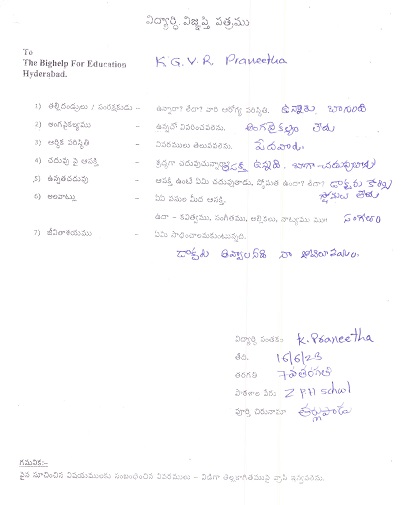 విద్యార్థి విజ్ఞప్తి పత్రము
To
The Bighelp For Education K G.V.R Praneetha
Hyderabad.
1) తల్లిదండ్రులు / సంరక్షకుడు – ఉన్నారా? లేదా? వారి ఆరోగ్య పరిస్థితి. ఉన్నారు, బాగుంది
2) అంగవైకల్యము – ఉన్నచో వివరించవలెను. అంగవైకల్యం లేదు
3) ఆర్థిక పరిస్థితి – వివరములు తెలుపవలెను. పేదవారు
4) చదువు పై ఆసక్తి – శ్రద్ధగా చదువుచున్నారా ఆసక్తి ఉన్నది. బాగా చదువుతాను
5) ఉన్నతచదువు – ఆసక్తి ఉంటే ఏమి చదువుతాడు, స్తోమత ఉందా? లేదా? డాక్టరు కోర్సు
స్తోమత లేదు
6) అలవాట్లు – ఏ ఏ పనుల మీద ఆసక్తి.
ఉదా – కవిత్వము, సంగీతము, ఆటలు, నాట్యము సంగీతం
7) జీవితాశయము – ఏమి సాధించాలనుకుంటున్నది.
డాక్టరు అవ్వాలన్నది నా
విద్యార్థి సంతకం: K. Praneetha
తేది. 16/6/23
తరగతి 7వతరగతి
పాఠశాల పేరు: Z P H School
పూర్తి చిరునామా
గమనిక:–
పైన సూచించిన విషయములకు సంబంధించిన వివరములు – విడిగా తెల్లకాగితముపై వ్రాసి ఇవ్వవలెను.